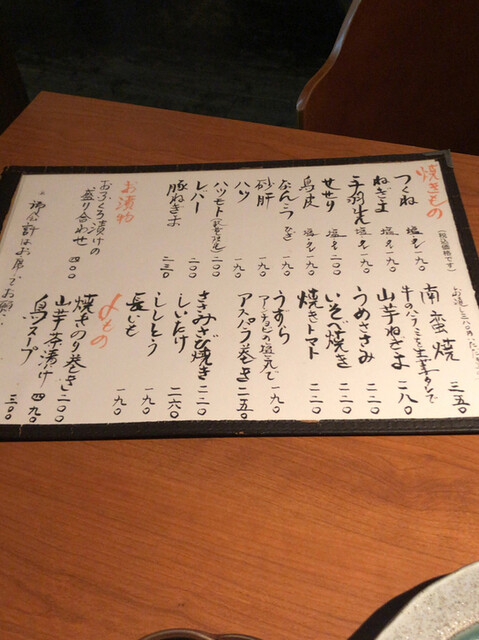 焼きもの
(税込価格です)
つくね 塩・タレ 一九〇
ねぎま 塩・タレ 一九〇
手羽先 塩・タレ 一九〇
せせり 塩・タレ 二〇〇
鳥皮 塩・タレ 一九〇
なんこつ 一九〇
砂肝 一九〇
ハツ 一九〇
ハツモト 二〇〇
レバー 二〇〇
豚ねぎま 二三〇
お漬物
おふくろ漬けの
盛り合わせ 四〇〇
御会計はお席でお願い
南蛮焼 三五〇
牛のハラミを
山芋ねぎま 二八〇
うめささみ 二二〇
いそべ焼き 二二〇
焼きトマト 二二〇
うずら 一九〇
アンチョビの塩気で
アスパラ巻き 二五〇
ささみさび焼き 二二〇
しいたけ 二六〇
ししとう 一九〇
長いも 一九〇
〆もの
焼きのり巻き 二〇〇
山芋茶漬け 四九〇
鳥スープ 三〇〇